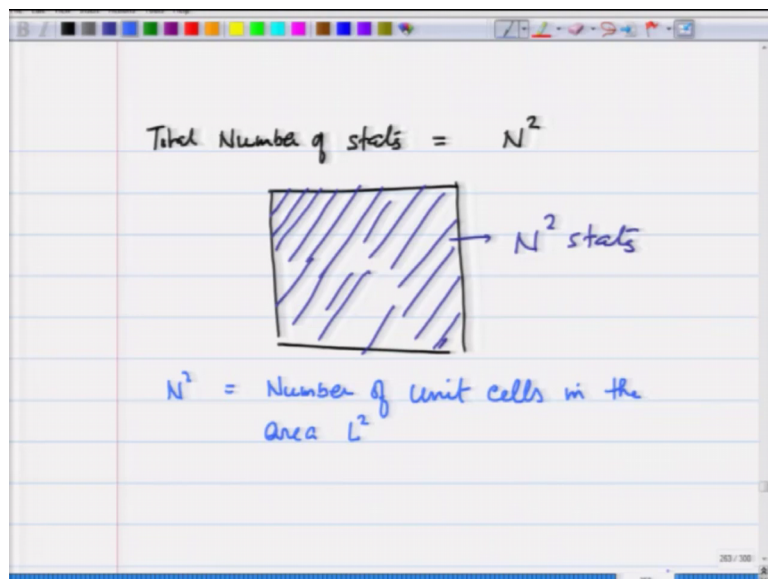 Total Number of stats = N²
N² stats
N² = Number of unit cells in the
area L²
283 / 300